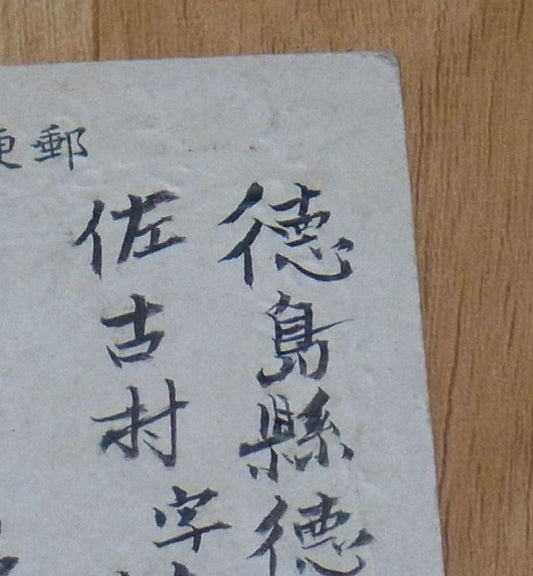 郵便
徳島縣徳
佐古村字